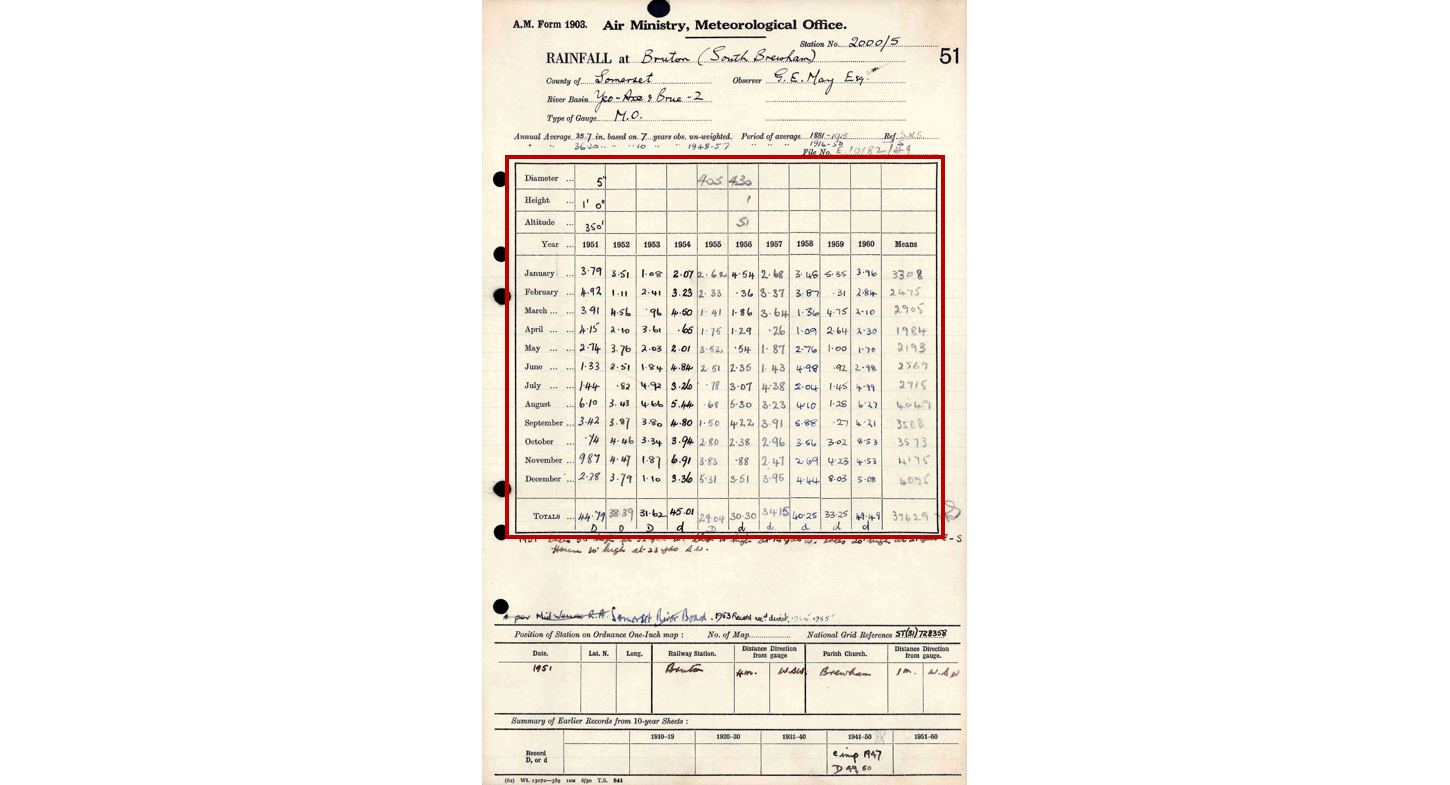 A.M. Form 1903. Air Ministry, Meteorological Office.
Station No. 2000/5
51
RAINFALL at Bruton (South Brewham)
County of Somerset Observer G.E. May Esq.
River Basin Yeo-Axe & Brue -2
Type of Gauge M.O.
Annual Average 35.7 in. based on 7 years obs. un-weighted. Period of average 1881-1915 Ref. S.W.S.
" " 36.20 " " 10 " " 1948-57 " " " 1916-50
File No. E 10182/49
Diameter ... 5" 405 430
Height ... 1' 0" 1
Altitude ... 350' 51
Year ... 1951 1952 1953 1954 1955 1956 1957 1958 1959 1960 Means
January ... 3.79 3.51 1.08 2.07 2.62 4.54 2.68 3.48 5.35 3.96 3308
February ... 4.92 1.11 2.41 3.23 2.33 .36 3.37 3.87 .31 2.84 2475
March ... 3.91 4.56 .96 4.50 1.41 1.86 3.64 1.36 4.75 2.10 2905
April ... 4.15 2.10 3.61 .65 1.75 1.29 .26 1.09 2.64 2.30 1984
May ... 2.74 3.76 2.03 2.01 3.52 .54 1.87 2.76 1.00 1.70 2193
June ... 1.33 2.51 1.84 4.84 2.51 2.35 1.43 4.98 .92 2.98 2569
July ... 1.44 .82 4.92 3.26 .78 3.07 4.38 2.04 1.45 4.99 2715
August ... 6.10 3.43 4.66 5.44 .68 5.30 3.23 4.10 1.28 6.27 4049
September ... 3.42 3.87 3.80 4.80 1.50 4.22 3.91 5.88 .27 4.21 3588
October ... .74 4.46 3.34 3.94 2.80 2.38 2.96 3.56 3.02 8.53 3573
November ... 9.87 4.47 1.87 6.91 3.83 .88 2.47 2.69 4.23 4.53 4175
December ... 2.38 3.79 1.10 3.36 5.31 3.51 3.95 4.44 8.03 5.08 4095
TOTALS ... 44.79 38.39 31.62 45.01 29.04 30.30 34.15 40.25 33.25 49.49 37629
D D D d D d d. d d d
House 30' high at 23 yds S.W.
As per Mid Wessex R.A. Somerset River Board. 1953 Record rec'd direct, 1954 1955
Position of Station on Ordnance One-Inch map : No. of Map National Grid Reference ST(31)728358
Date. Lat. N. Long. Railway Station. Distance Direction from gauge Parish Church. Distance Direction from gauge.
1951 Bruton 4m. W.S.W. Brewham 1m. W.S.W
Summary of Earlier Records from 10-year Sheets :
1910-19 1920-30 1931-40 1941-50 1951-60
Record D, or d
c imp 1947
D 49, 50
(62) Wt. 13072—389 10M 6/50 T.S. 841